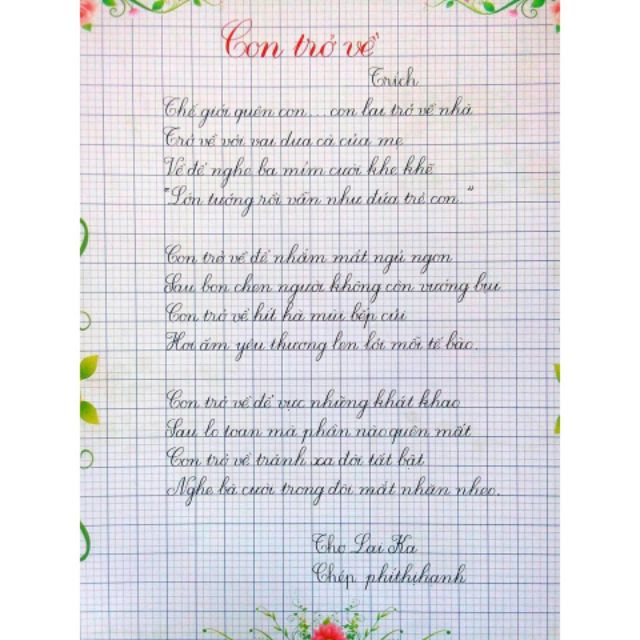 Con trở về
Trích
Thế giới quên con... con lại trở về nhà
Trở về với vại dưa cà của mẹ
Về để nghe ba mỉm cười khe khẽ
"Lớn tướng rồi vẫn như đứa trẻ con."
Con trở về để nhắm mắt ngủ ngon
Sau bon chen người không còn vướng bụi
Con trở về hít hà mùi bếp củi
Hơi ấm yêu thương len lỏi mỗi tế bào.
Con trở về để vực những khát khao
Sau lo toan mà phần nào quên mất
Con trở về tránh xa đời tất bật
Nghe bà cười trong đôi mắt nhăn nheo.
Thơ Lai Ka
Chép phíthịhanh